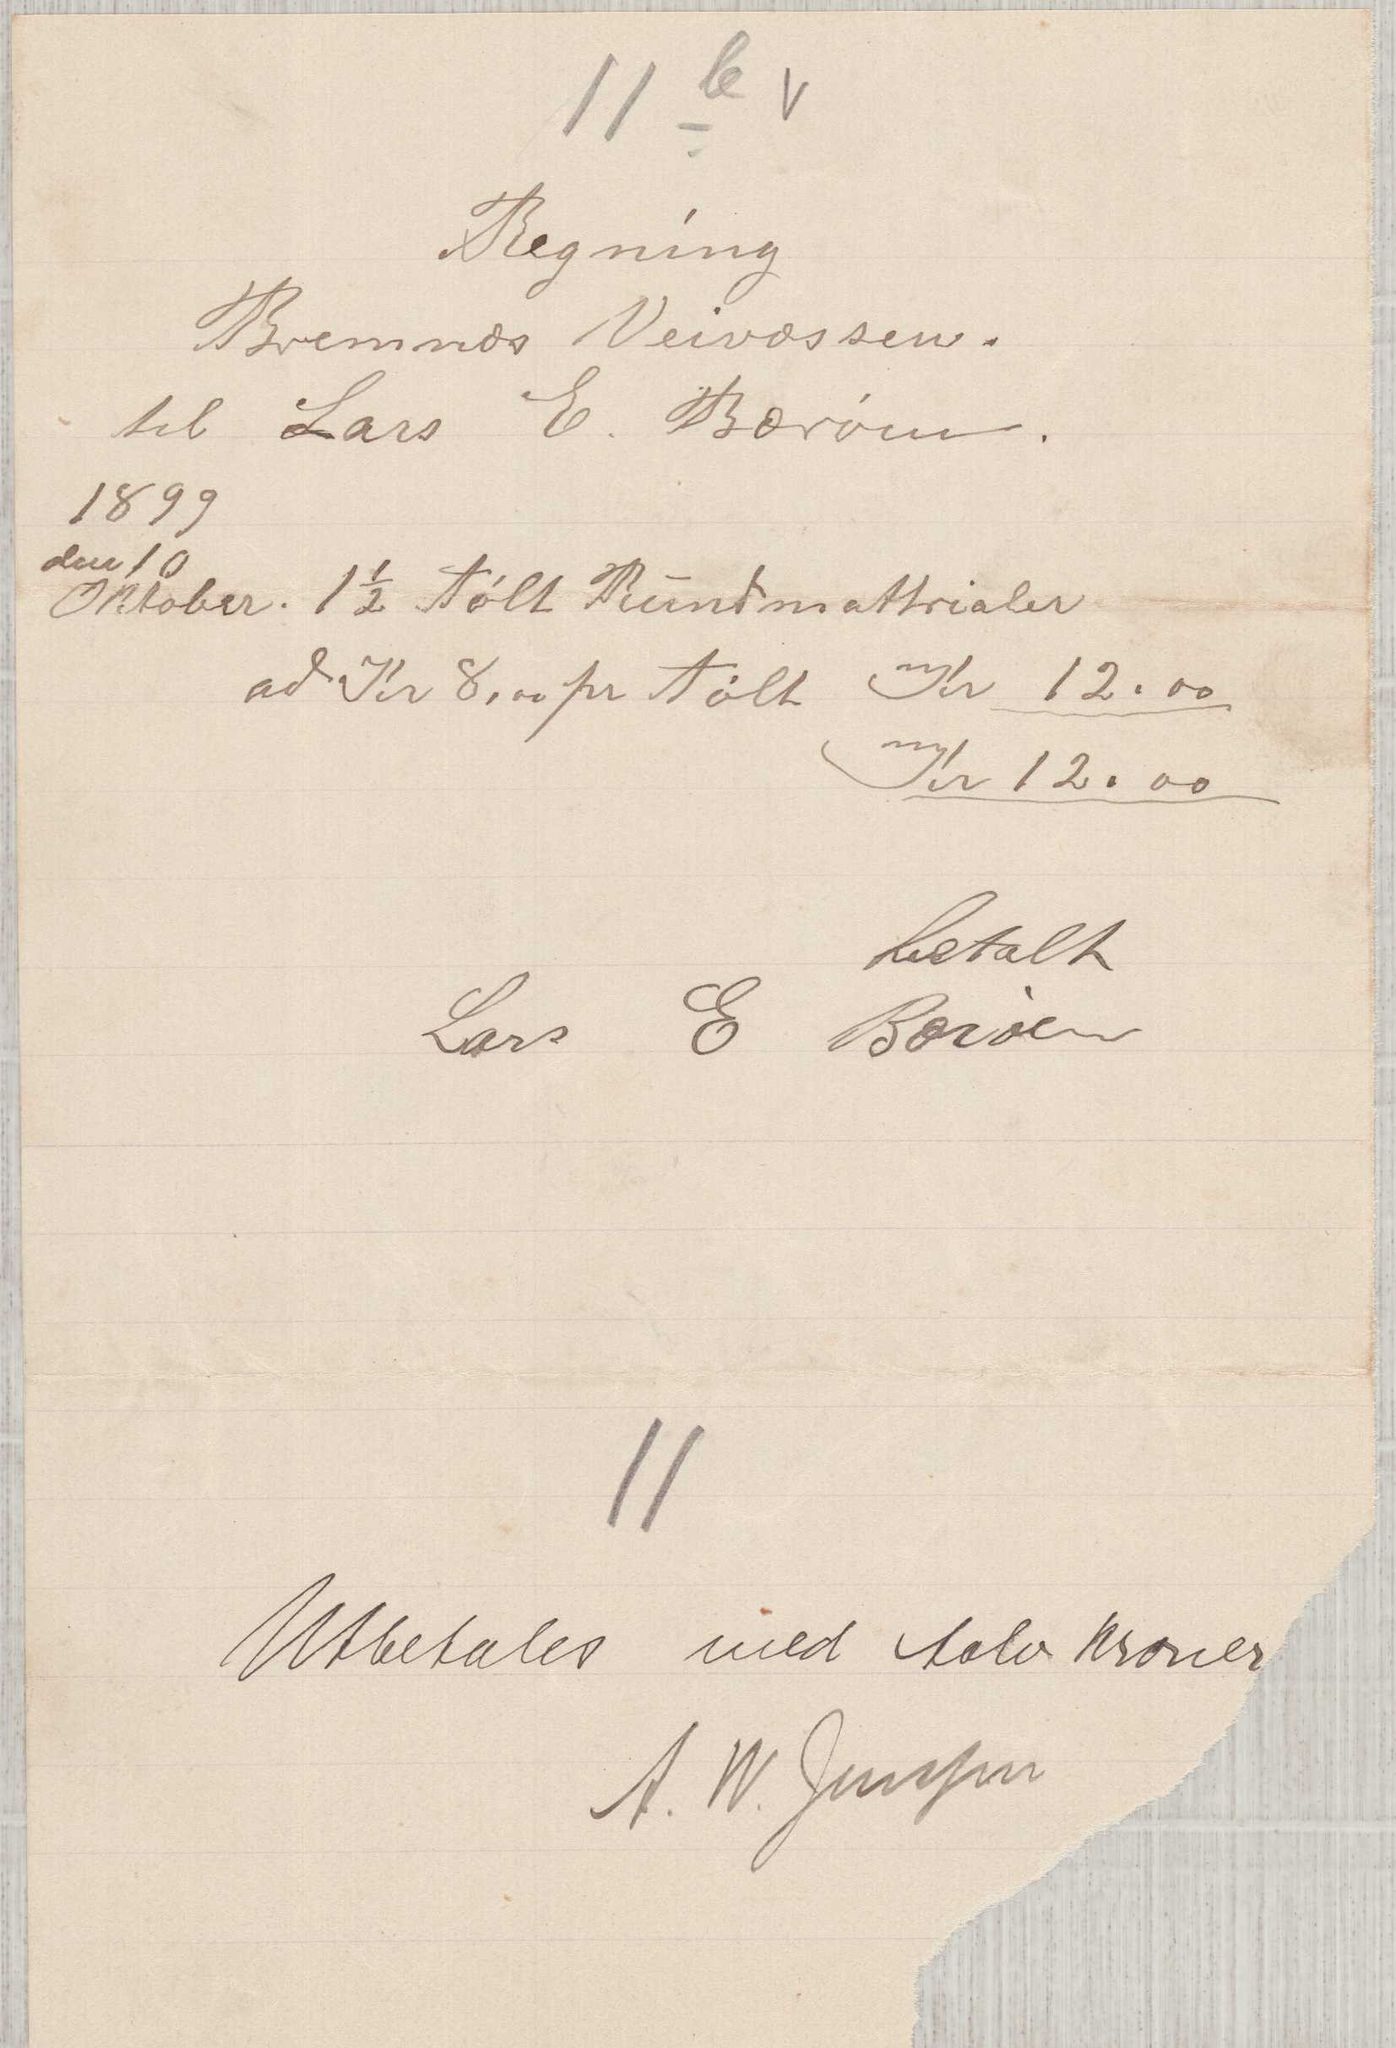 11 b v
Regning
Bremnæs Veivæssen.
til Lars E. Bærøen.
1899
den 10
Oktober. 1½ Tólt Rundmattrialer
ad Kr 8,00 pr Tólt Kr 12.00
Kr 12.00
betalt
Lars E Bærøen
11
Utbetales med tolv kroner
A. W.